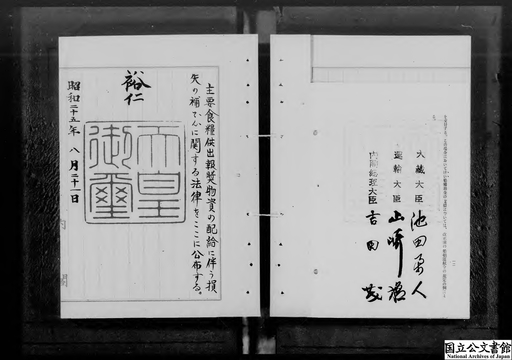 主要食糧供出報奨物資の配給に伴う損
失の補てんに関する法律をここに公布する。
裕仁
天皇
御璽
昭和二十五年 八月二十一日
大蔵大臣 池田勇人
運輸大臣 山崎猛
内閣総理大臣 吉田茂
国立公文書館
National Archives of Japan